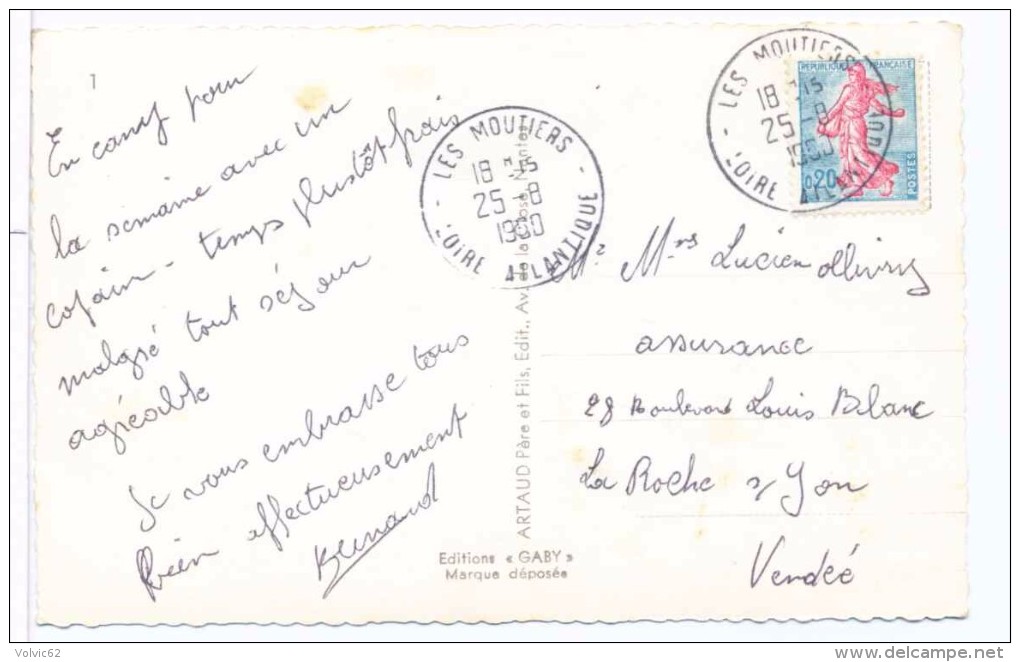 En camp pour
la semaine avec un
copain - temps plustôt frais
malgré tout séjour
agréable
Je vous embrasse tous
bien affectueusement
Bernard
LES MOUTIERS
18 H15
25-8
1960
LOIRE ATLANTIQUE
ARTAUD Père et Fils, Edit., Av. de la
Editions « GABY »
Marque déposée
LES MOUTIERS
18 H15
25-8
1960
LOIRE ATLANTIQUE
REPUBLIQUE FRANÇAISE
0,20
POSTES
Mr Mme Lucien
assurance
28 Boulevard Louis Blanc
La Roche s Yon
Vendée
Volvic62
delcampe.net